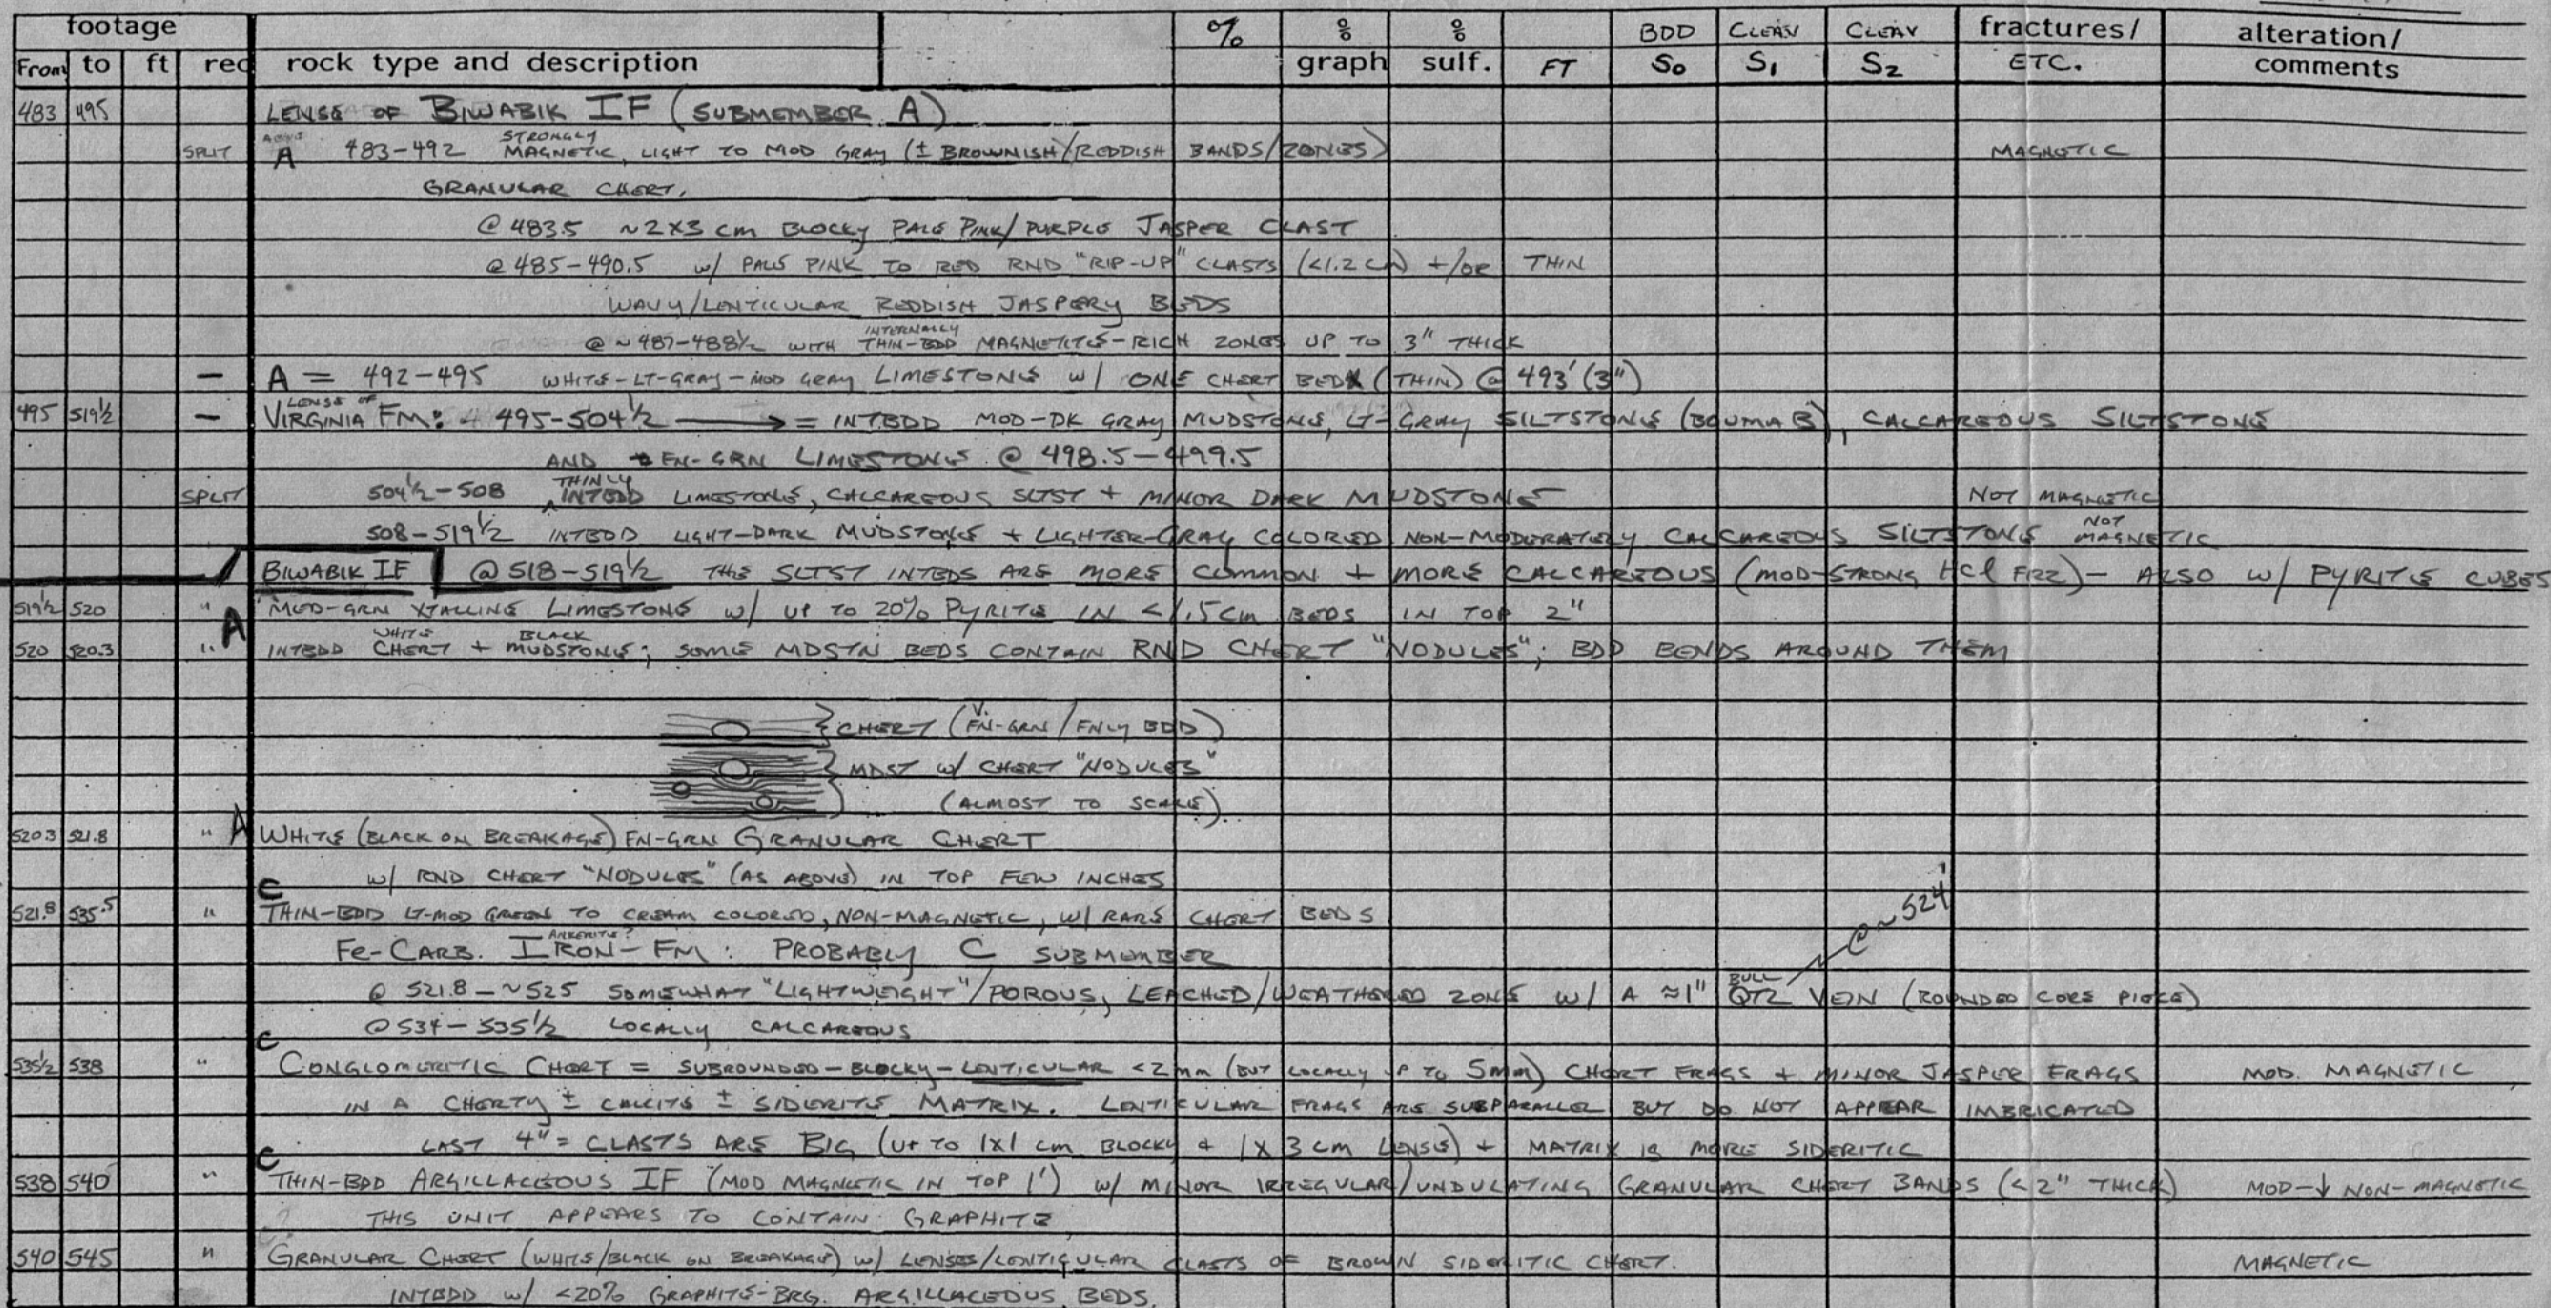 footage % % % BDD CLEAV CLEAV fractures/ alteration/
From to ft rec rock type and description graph sulf. FT S₀ S₁ S₂ ETC. comments
483 495 LENSE OF BIWABIK IF (SUBMEMBER A)
SPLIT A 483-492 STRONGLY MAGNETIC, LIGHT TO MOD GRAY (± BROWNISH/REDDISH BANDS/ZONES) MAGNETIC
GRANULAR CHERT.
@ 483.5 ~2X3 cm BLOCKY PALE PINK/PURPLE JASPER CLAST
@ 485-490.5 w/ PALE PINK TO RED RND "RIP-UP" CLASTS (<1.2 cm) +/or THIN
WAVY/LENTICULAR REDDISH JASPERY BEDS
@ ~487-488½ WITH INTERNALLY THIN-BDD MAGNETITE-RICH ZONES UP TO 3" THICK
— A = 492-495 WHITE-LT-GRAY-MOD GRAY LIMESTONE w/ ONE CHERT BED (THIN) @ 493' (3")
495 519½ — LENSE OF VIRGINIA FM: 495-504½ ⟶ = INTBDD MOD-DK GRAY MUDSTONE, LT-GRAY SILTSTONE (BOUMA B), CALCAREOUS SILTSTONE
AND FN-GRN LIMESTONE @ 498.5-499.5
SPLIT 504½-508 THINLY INTBDD LIMESTONE, CALCAREOUS SLTST + MINOR DARK MUDSTONE NOT MAGNETIC
508-519½ INTBDD LIGHT-DARK MUDSTONE + LIGHTER-GRAY COLORED NON-MODERATELY CALCAREOUS SILTSTONE NOT MAGNETIC
BIWABIK IF @ 518-519½ THE SLTST INTBDS ARE MORE COMMON + MORE CALCAREOUS (MOD-STRONG HCl FIZZ)- ALSO w/ PYRITE CUBES
519½ 520 " MED-GRN XTALLINE LIMESTONE w/ UP TO 20% PYRITE IN <1.5cm BEDS IN TOP 2"
A
520 520.3 " INTBDD WHITE CHERT + BLACK MUDSTONE; SOME MDSTN BEDS CONTAIN RND CHERT "NODULES"; BDD BENDS AROUND THEM
} CHERT (V. FN-GRN/FNLY BDD)
} MDST w/ CHERT "NODULES"
(ALMOST TO SCALE)
520.3 521.8 " A WHITE (BLACK ON BREAKAGE) FN-GRN GRANULAR CHERT
w/ RND CHERT "NODULES" (AS ABOVE) IN TOP FEW INCHES
521.8 535.5 " C THIN-BDD LT-MOD GREEN TO CREAM COLORED, NON-MAGNETIC, w/ RARE CHERT BEDS
@ ~524'
Fe-CARB. ANKERITE? IRON-FM: PROBABLY C SUBMEMBER
@ 521.8-~525 SOMEWHAT "LIGHTWEIGHT"/POROUS, LEACHED/WEATHERED ZONE w/ A ≈1" BULL QTZ VEIN (ROUNDED CORE PIECE)
@ 534-535½ LOCALLY CALCAREOUS
535½ 538 " C CONGLOMERITIC CHERT = SUBROUNDED-BLOCKY-LENTICULAR <2mm (BUT LOCALLY UP TO 5mm) CHERT FRAGS + MINOR JASPER FRAGS MOD. MAGNETIC
IN A CHERTY ± CALCITE ± SIDERITE MATRIX. LENTICULAR FRAGS ARE SUBPARALLEL BUT DO NOT APPEAR IMBRICATED
LAST 4" = CLASTS ARE BIG (UP TO 1X1 cm BLOCKY + 1X3 cm LENSE) + MATRIX IS MORE SIDERITIC
538 540 " C THIN-BDD ARGILLACEOUS IF (MOD MAGNETIC IN TOP 1') w/ MINOR IRREGULAR/UNDULATING GRANULAR CHERT BANDS (<2" THICK) MOD-↓ NON-MAGNETIC
THIS UNIT APPEARS TO CONTAIN GRAPHITE
540 545 " GRANULAR CHERT (WHITE/BLACK ON BREAKAGE) w/ LENSES/LENTICULAR CLASTS OF BROWN SIDERITIC CHERT. MAGNETIC
INTBDD w/ <20% GRAPHITE-BRG. ARGILLACEOUS BEDS.